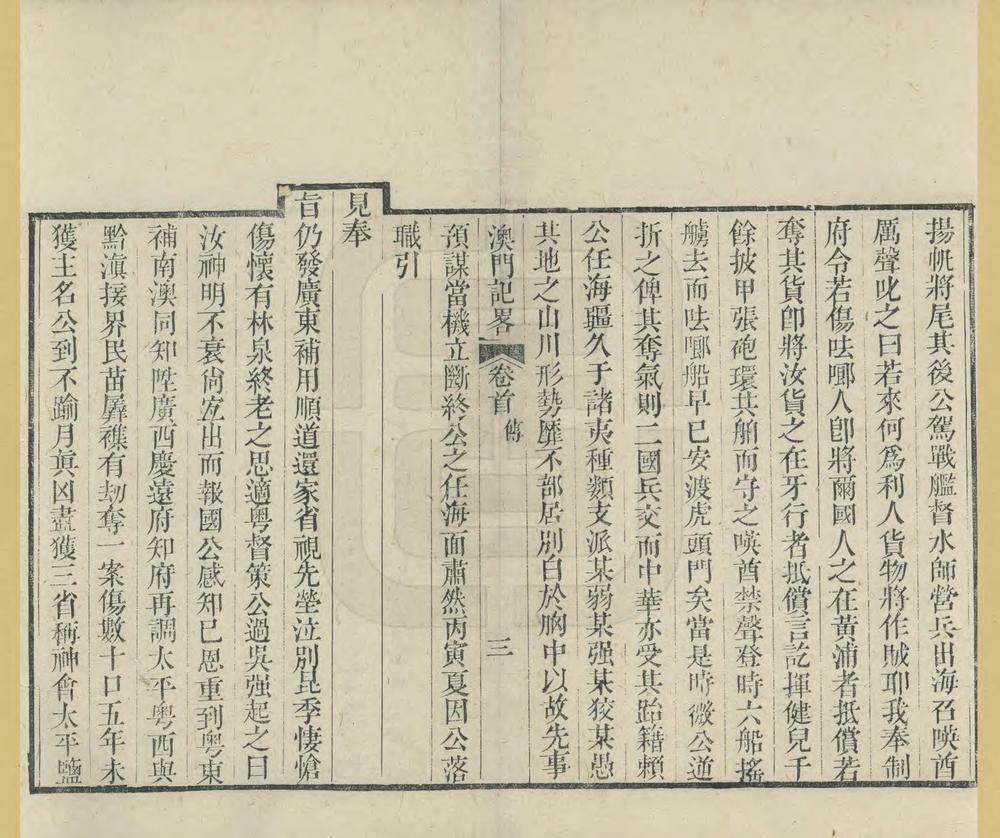 揚帆將尾其後公駕戰艦督水師營兵出海召㖟酋
厲聲叱之曰若來何爲利人貨物將作賊耶我奉制
府令若傷呿㘄人卽將爾國人之在黃浦者抵償若
奪其貨卽將汝貨之在牙行者抵償言訖揮健兒千
餘披甲張砲環其舶而守之㖟酋禁聲登時六船搖
艣去而呿㘄船早已安渡虎頭門矣當是時微公逆
折之俾其奪氣則二國兵交而中華亦受其跆籍賴
公任海疆久于諸夷種類支派某弱某强某狡某愚
共地之山川形勢靡不部居別白於胸中以故先事
澳門記畧 卷首 傳 三
預謀當機立斷終公之任海面肅然丙寅夏因公落
職引
見奉
旨仍發廣東補用順道還家省視先塋泣別昆季悽愴
傷懷有林泉終老之思適粤督策公過吳强起之曰
汝神明不衰尙宐出而報國公感知已恩重到粤東
補南澳同知陞廣西慶遠府知府再調太平粤西與
黔滇接界民苗羼襍有刼奪一案傷數十口五年未
獲主名公到不踰月眞凶盡獲三省稱神會太平鹽